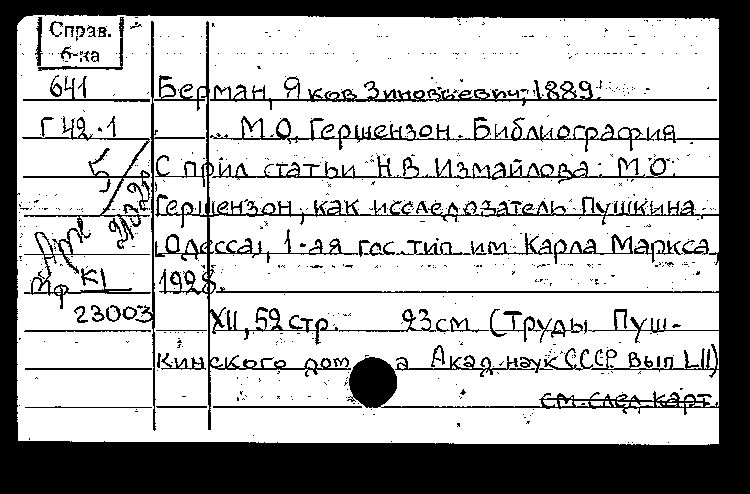 Справ.
б-ка
641
Г 42.1
5/
КІ
мф
23003
Берман, Яков Зиновьевич, 1889.
... М.О. Гершензон. Библиография
С прил статьи Н.В. Измайлова: М.О.
Гершензон, как исследователь Пушкина.
[Одесса], 1-ая гос. тип им Карла Маркса,
1928.
XII, 52 стр. 23 см. (Труды Пуш-
кинского дома Акад. наук СССР Вып LII)
см. след. карт.